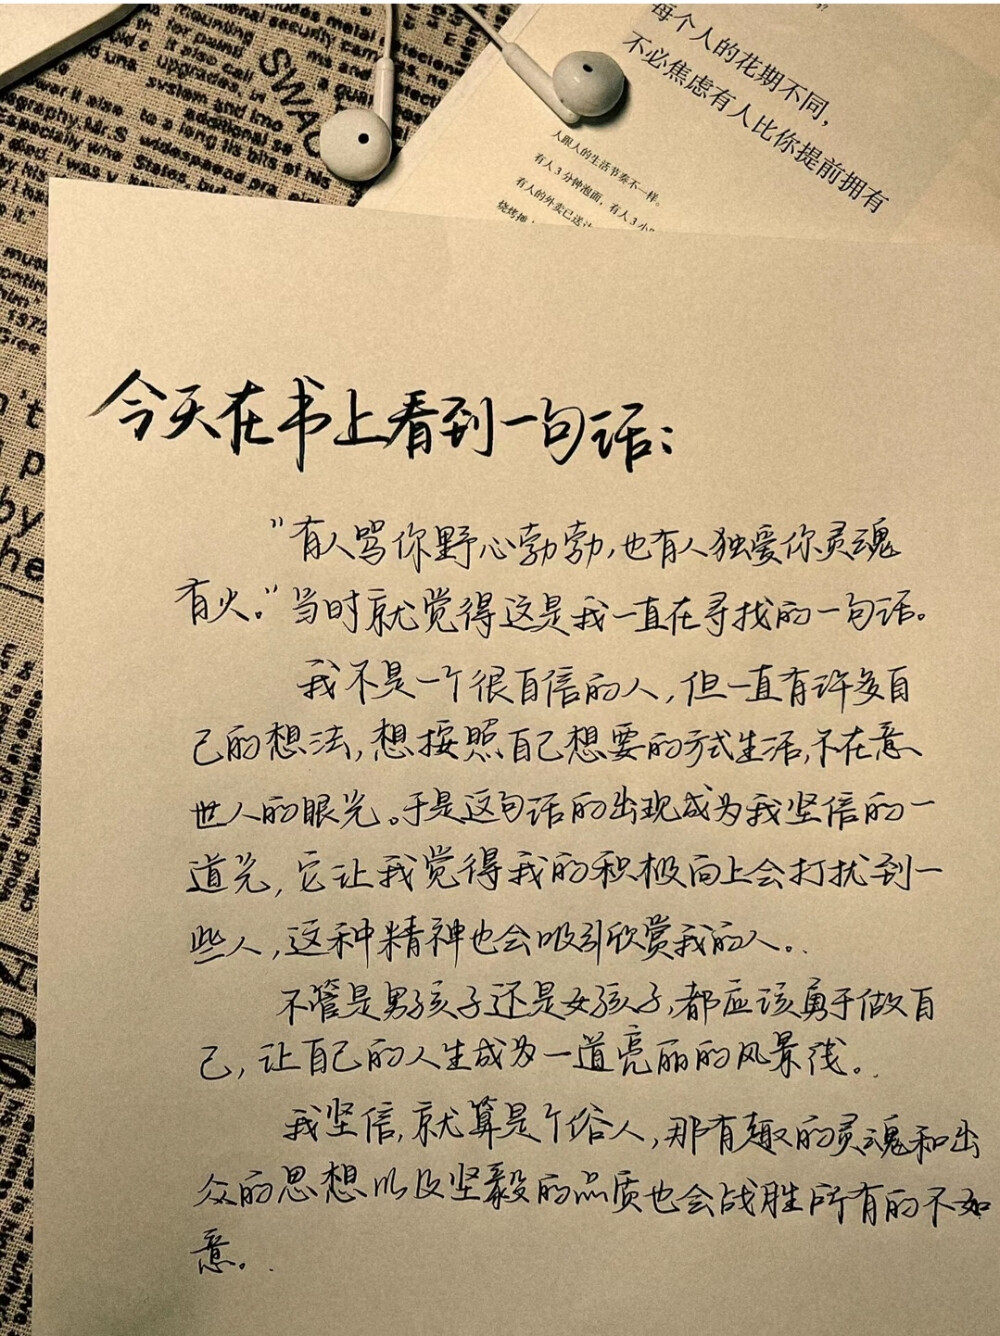 每个人的花期不同，
不必焦虑有人比你提前拥有
人跟人的生活节奏不一样。
有人3分钟泡面，有人3小
有人的外卖已送达
烧烤摊
SWAG
今天在书上看到一句话：
"有人骂你野心勃勃，也有人独爱你灵魂
有火。"当时就觉得这是我一直在寻找的一句话。
我不是一个很自信的人，但一直有许多自
己的想法，想按照自己想要的方式生活，不在意
世人的眼光。于是这句话的出现成为我坚信的一
道光，它让我觉得我的积极向上会打扰到一
些人，这种精神也会吸引欣赏我的人。
不管是男孩子还是女孩子，都应该勇于做自
己，让自己的人生成为一道亮丽的风景线。
我坚信，就算是个俗人，那有趣的灵魂和出
众的思想以及坚毅的品质也会战胜所有的不如
意。